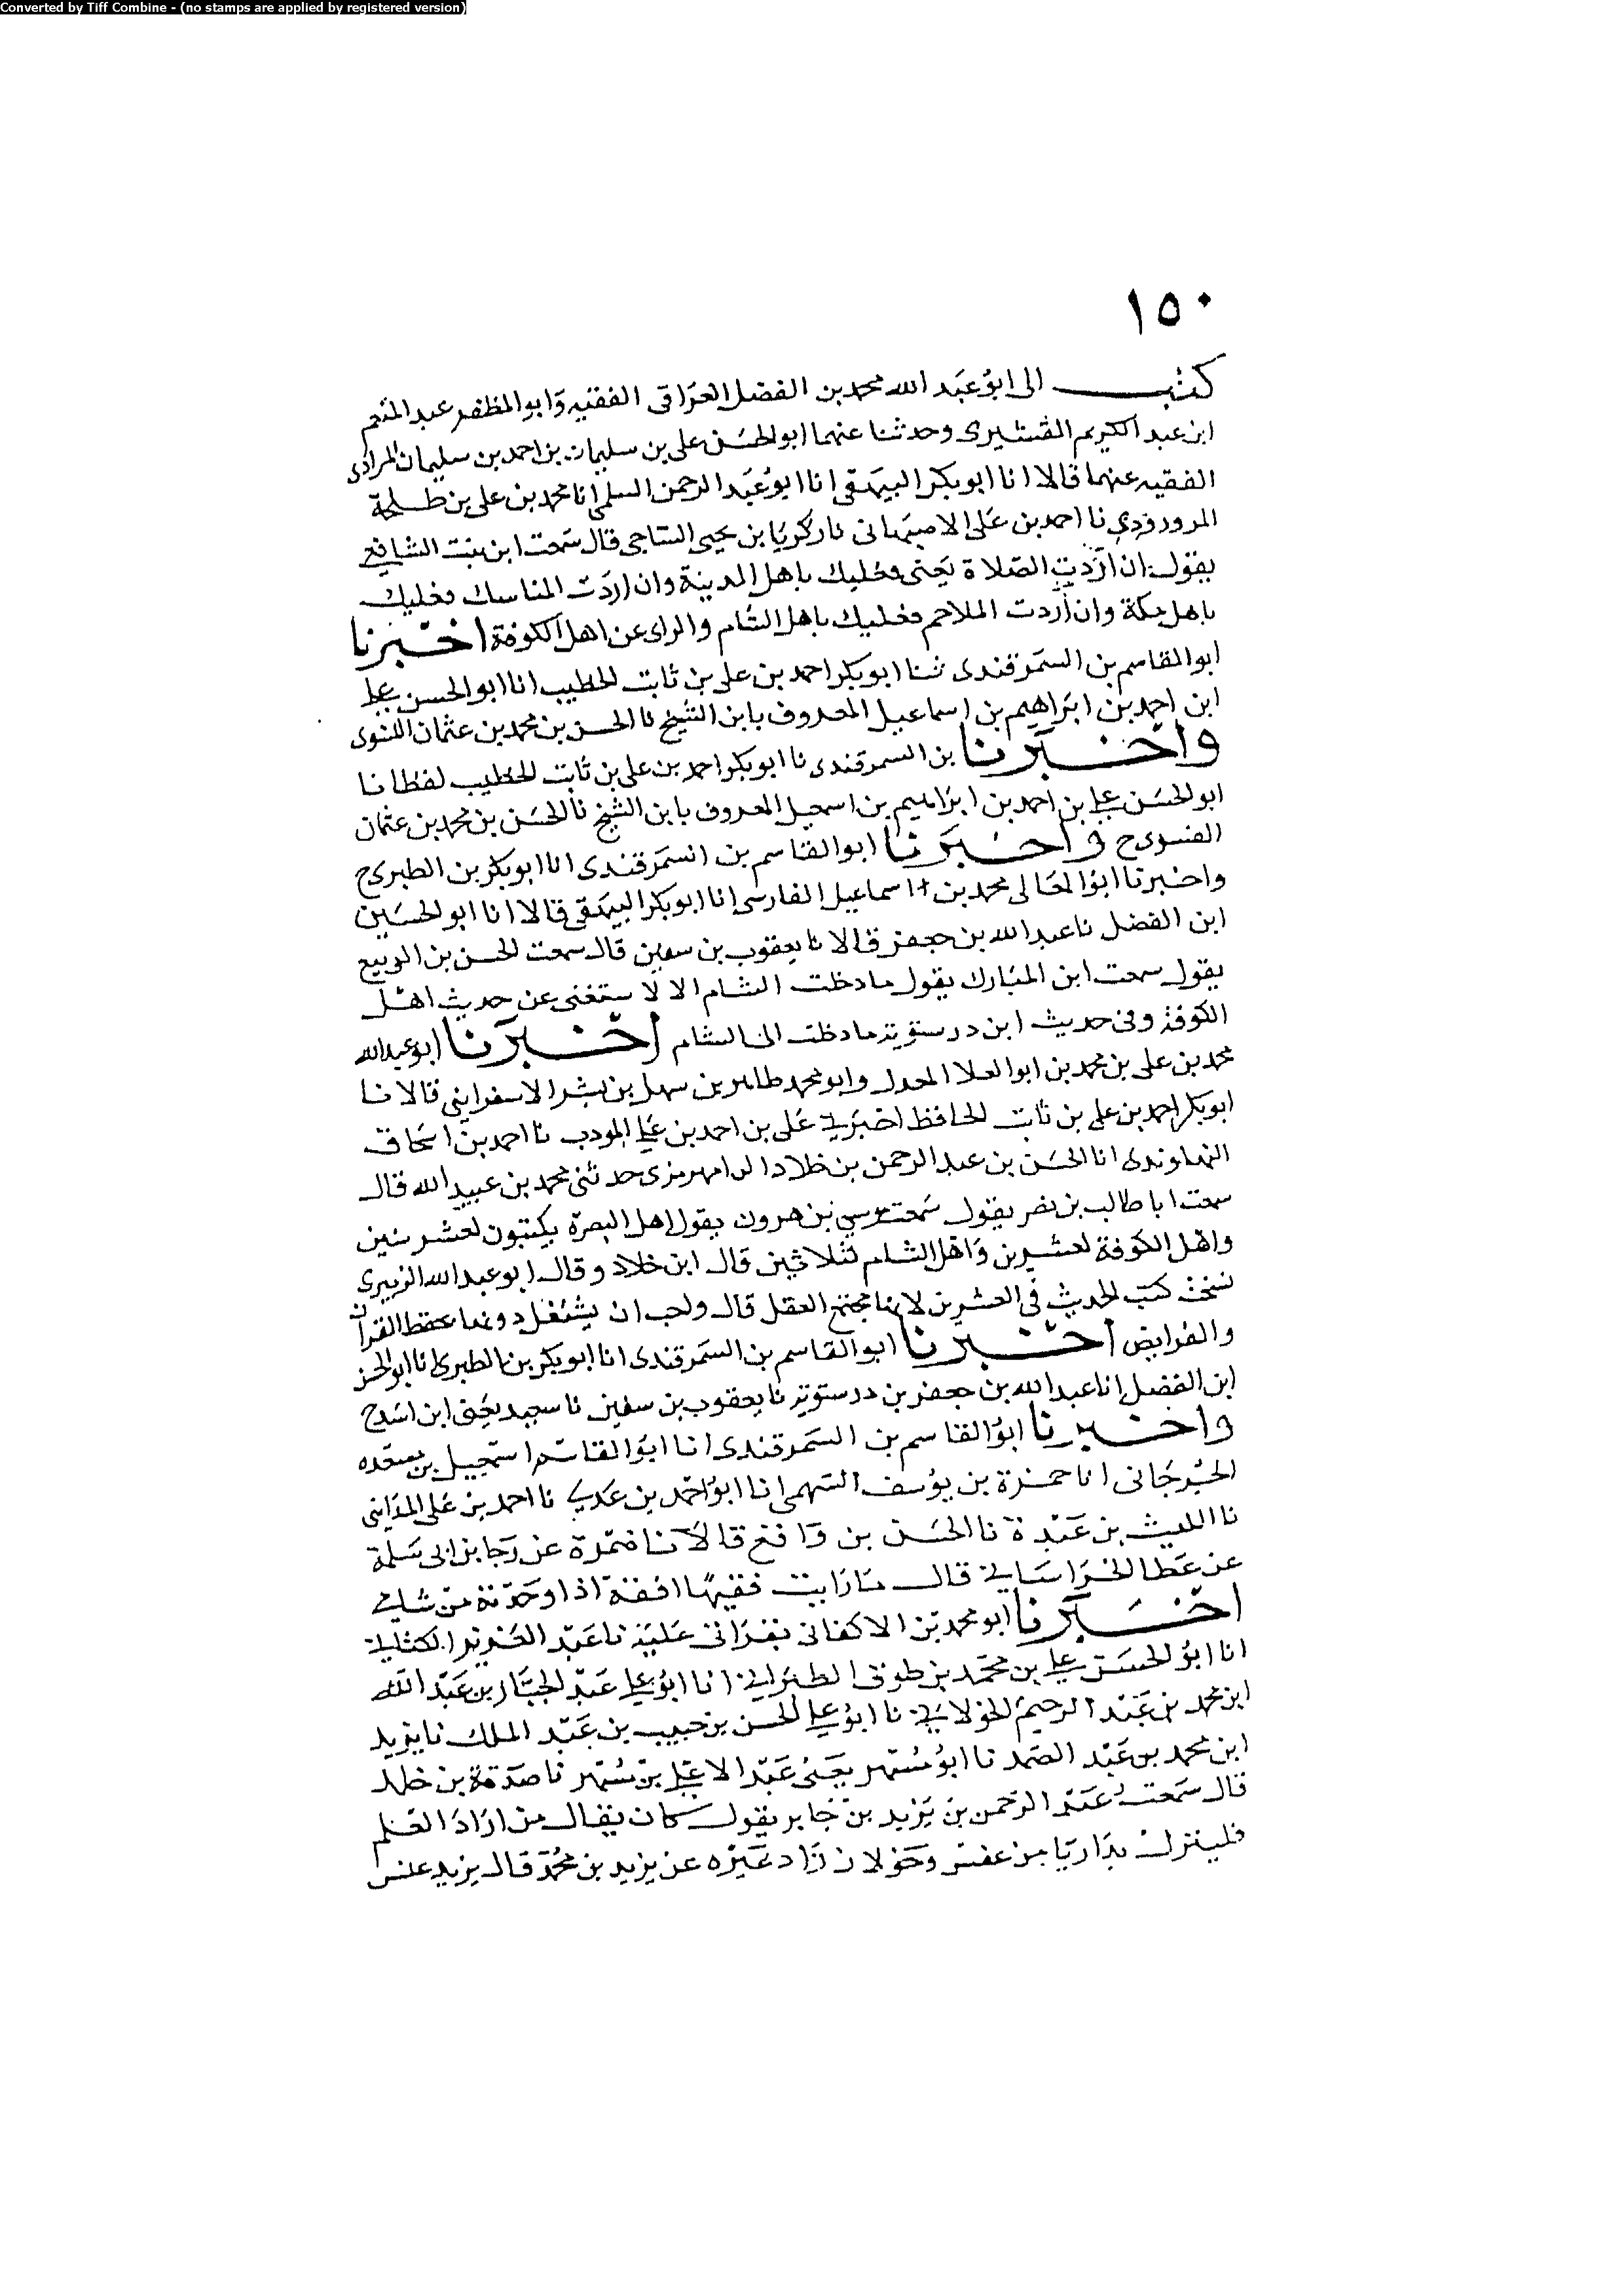 Converted by Tiff Combine - (no stamps are applied by registered version)
١٥٠
كتب الى ابو عبد الله محمد بن الفضل العراقى الفقيه وابو المظفر عبد المنعم
ابن عبد الكريم القشيرى وحدثنا عنهما ابو الحسن على بن سليمان بن احمد بن سليمان المرادى
الفقيه عنهما قالا انا ابو بكر البيهقى انا ابو عبد الرحمن السلمى انا محمد بن على بن طلحة
المروروذى نا احمد بن على الاصبهانى نا زكريا بن يحيى الساجى قال سمعت ابن بنت الشافعى
يقول ان اردت الصلاة يعنى فعليك باهل المدينة وان اردت المناسك فعليك
باهل مكة وان اردت الملاحم فعليك باهل الشام والراى عن اهل الكوفة اخبرنا
ابو القاسم بن السمرقندى ثنا ابو بكر احمد بن على بن ثابت الخطيب انا ابو الحسن على
ابن احمد بن ابراهيم بن اسماعيل المعروف بابن الشيخ نا الحسن بن محمد بن عثمان الفسوى
واخبرنا بن السمرقندى نا ابو بكر احمد بن على بن ثابت الخطيب لفظا نا
ابو الحسن على بن احمد بن ابراهيم بن اسمعيل المعروف بابن الشيخ نا الحسن بن محمد بن عثمان
الفسوى ح واخبرنا ابو القاسم بن السمرقندى انا ابو بكر بن الطبرى ح
واخبرنا ابو المعالى محمد بن اسماعيل الفارسى انا ابو بكر البيهقى قالا انا ابو الحسين
ابن الفضل نا عبد الله بن جعفر قالا نا يعقوب بن سفين قال سمعت الحسن بن الربيع
يقول سمعت ابن المبارك يقول ما دخلت الشام الا لا ستغنى عن حديث اهل
الكوفة وفى حديث ابن درستويه ما دخلت الى الشام اخبرنا ابو عبد الله
محمد بن على بن محمد بن ابو العلا المعدل وابو محمد طاهر بن سهل بن بشر الاسفراينى قالا نا
ابو بكر احمد بن على بن ثابت الحافظ اخبرنى على بن احمد بن على المودب نا احمد بن اسحاق
النهاوندى انا الحسن بن عبد الرحمن بن خلاد الرامهرمزى حدثنى محمد بن عبيد الله قال
سمعت ابا طالب بن نصر يقول سمعت موسى بن هرون يقول اهل البصرة يكتبون لعشر سنين
واهل الكوفة لعشرين واهل الشام لثلاثين قال ابن خلاد وقال ابو عبد الله الزبيرى
نستحب كتب الحديث فى العشرين لانها مجتمع العقل قال واحب ان يشتغل دونها بحفظ القران
والفرايض اخبرنا ابو القاسم بن السمرقندى انا ابو بكر بن الطبرى انا ابو الحسن
ابن الفضل انا عبد الله بن جعفر بن درستويه نا يعقوب بن سفين نا سعيد يعنى ابن اسد ح
واخبرنا ابو القاسم بن السمرقندى انا ابو القاسم اسمعيل بن مسعده
الجرجانى انا حمزة بن يوسف السهمى انا ابو احمد بن عدى نا احمد بن على المداينى
نا الليث بن عبدة نا الحسن بن واقع قالا نا ضمرة عن رجا بن ابى سلمة
عن عطا الخراسانى قال ما رايت فقيها افقه اذا وجدته من شامى
اخبرنا ابو محمد بن الاكفانى بقراتى عليه نا عبد العزيز الكتانى
انا ابو الحسن على بن محمد بن طوق الطبرانى انا ابو على عبد الجبار بن عبد الله
ابن محمد بن عبد الرحيم الخولانى نا ابو على الحسن بن حبيب بن عبد الملك نا يزيد
ابن محمد بن عبد الصمد نا ابو مسهر يعنى عبد الاعلى بن مسهر نا صدقة بن خلد
قال سمعت عبد الرحمن بن يزيد بن جابر يقول كان يقال من اراد العلم
فلينزل بداريا بين عنس وخولان زاد غيره عن يزيد بن محمد قال يزيد عنس